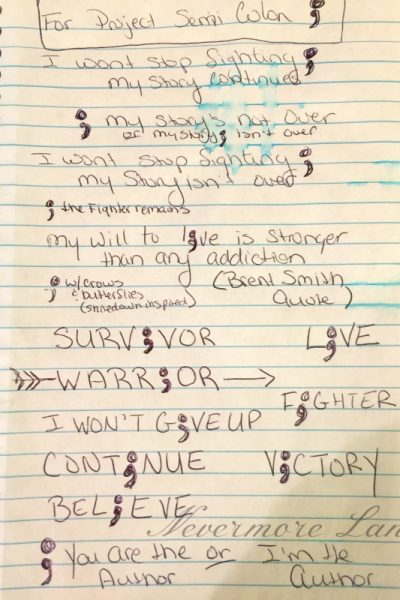 For Project Semi Colon ;
I wont stop fighting ;
my Story continues
; my story's not over
or my story; isn't over
I wont stop fighting ;
my Story isn't over
; the Fighter remains
my will to l;ve is stronger
than any addiction
; w/crows
& butterflies
(shinedown inspired)
(Brent Smith
Quote)
SURV;VOR
L;VE
WARR;OR
F;GHTER
I WON'T G;VE UP
CONT;NUE
V;CTORY
BEL;EVE
Nevermore Lan
; You are the or I'm the
Author Author